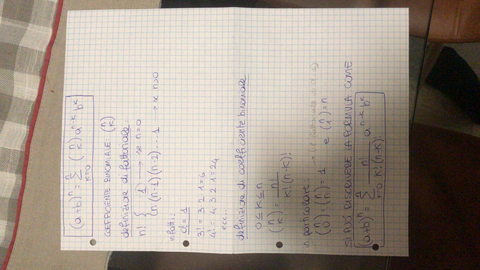 (a+b)ⁿ = Σ_{k=0}^{n} (n k) aⁿ⁻ᵏ bᵏ
COEFFICIENTE BINOMIALE: (n k)
definizione di fattoriale:
n! { 1 se n=0
n(n-1)(n-2)... 1 se n>0
infatti:
0! = 1
3! = 3·2·1 = 6
4! = 4·3·2·1 = 24
ecc...
definizione di coefficiente binomiale
0≤k≤n
(n k) = n! / k!(n-k)!
in particolare
(n 0) = (n n) = 1 e (n 1) = n
SI PUÒ RISCRIVERE LA FORMULA COME
(a+b)ⁿ = Σ_{k=0}^{n} n! / k!(n-k)! aⁿ⁻ᵏ bᵏ